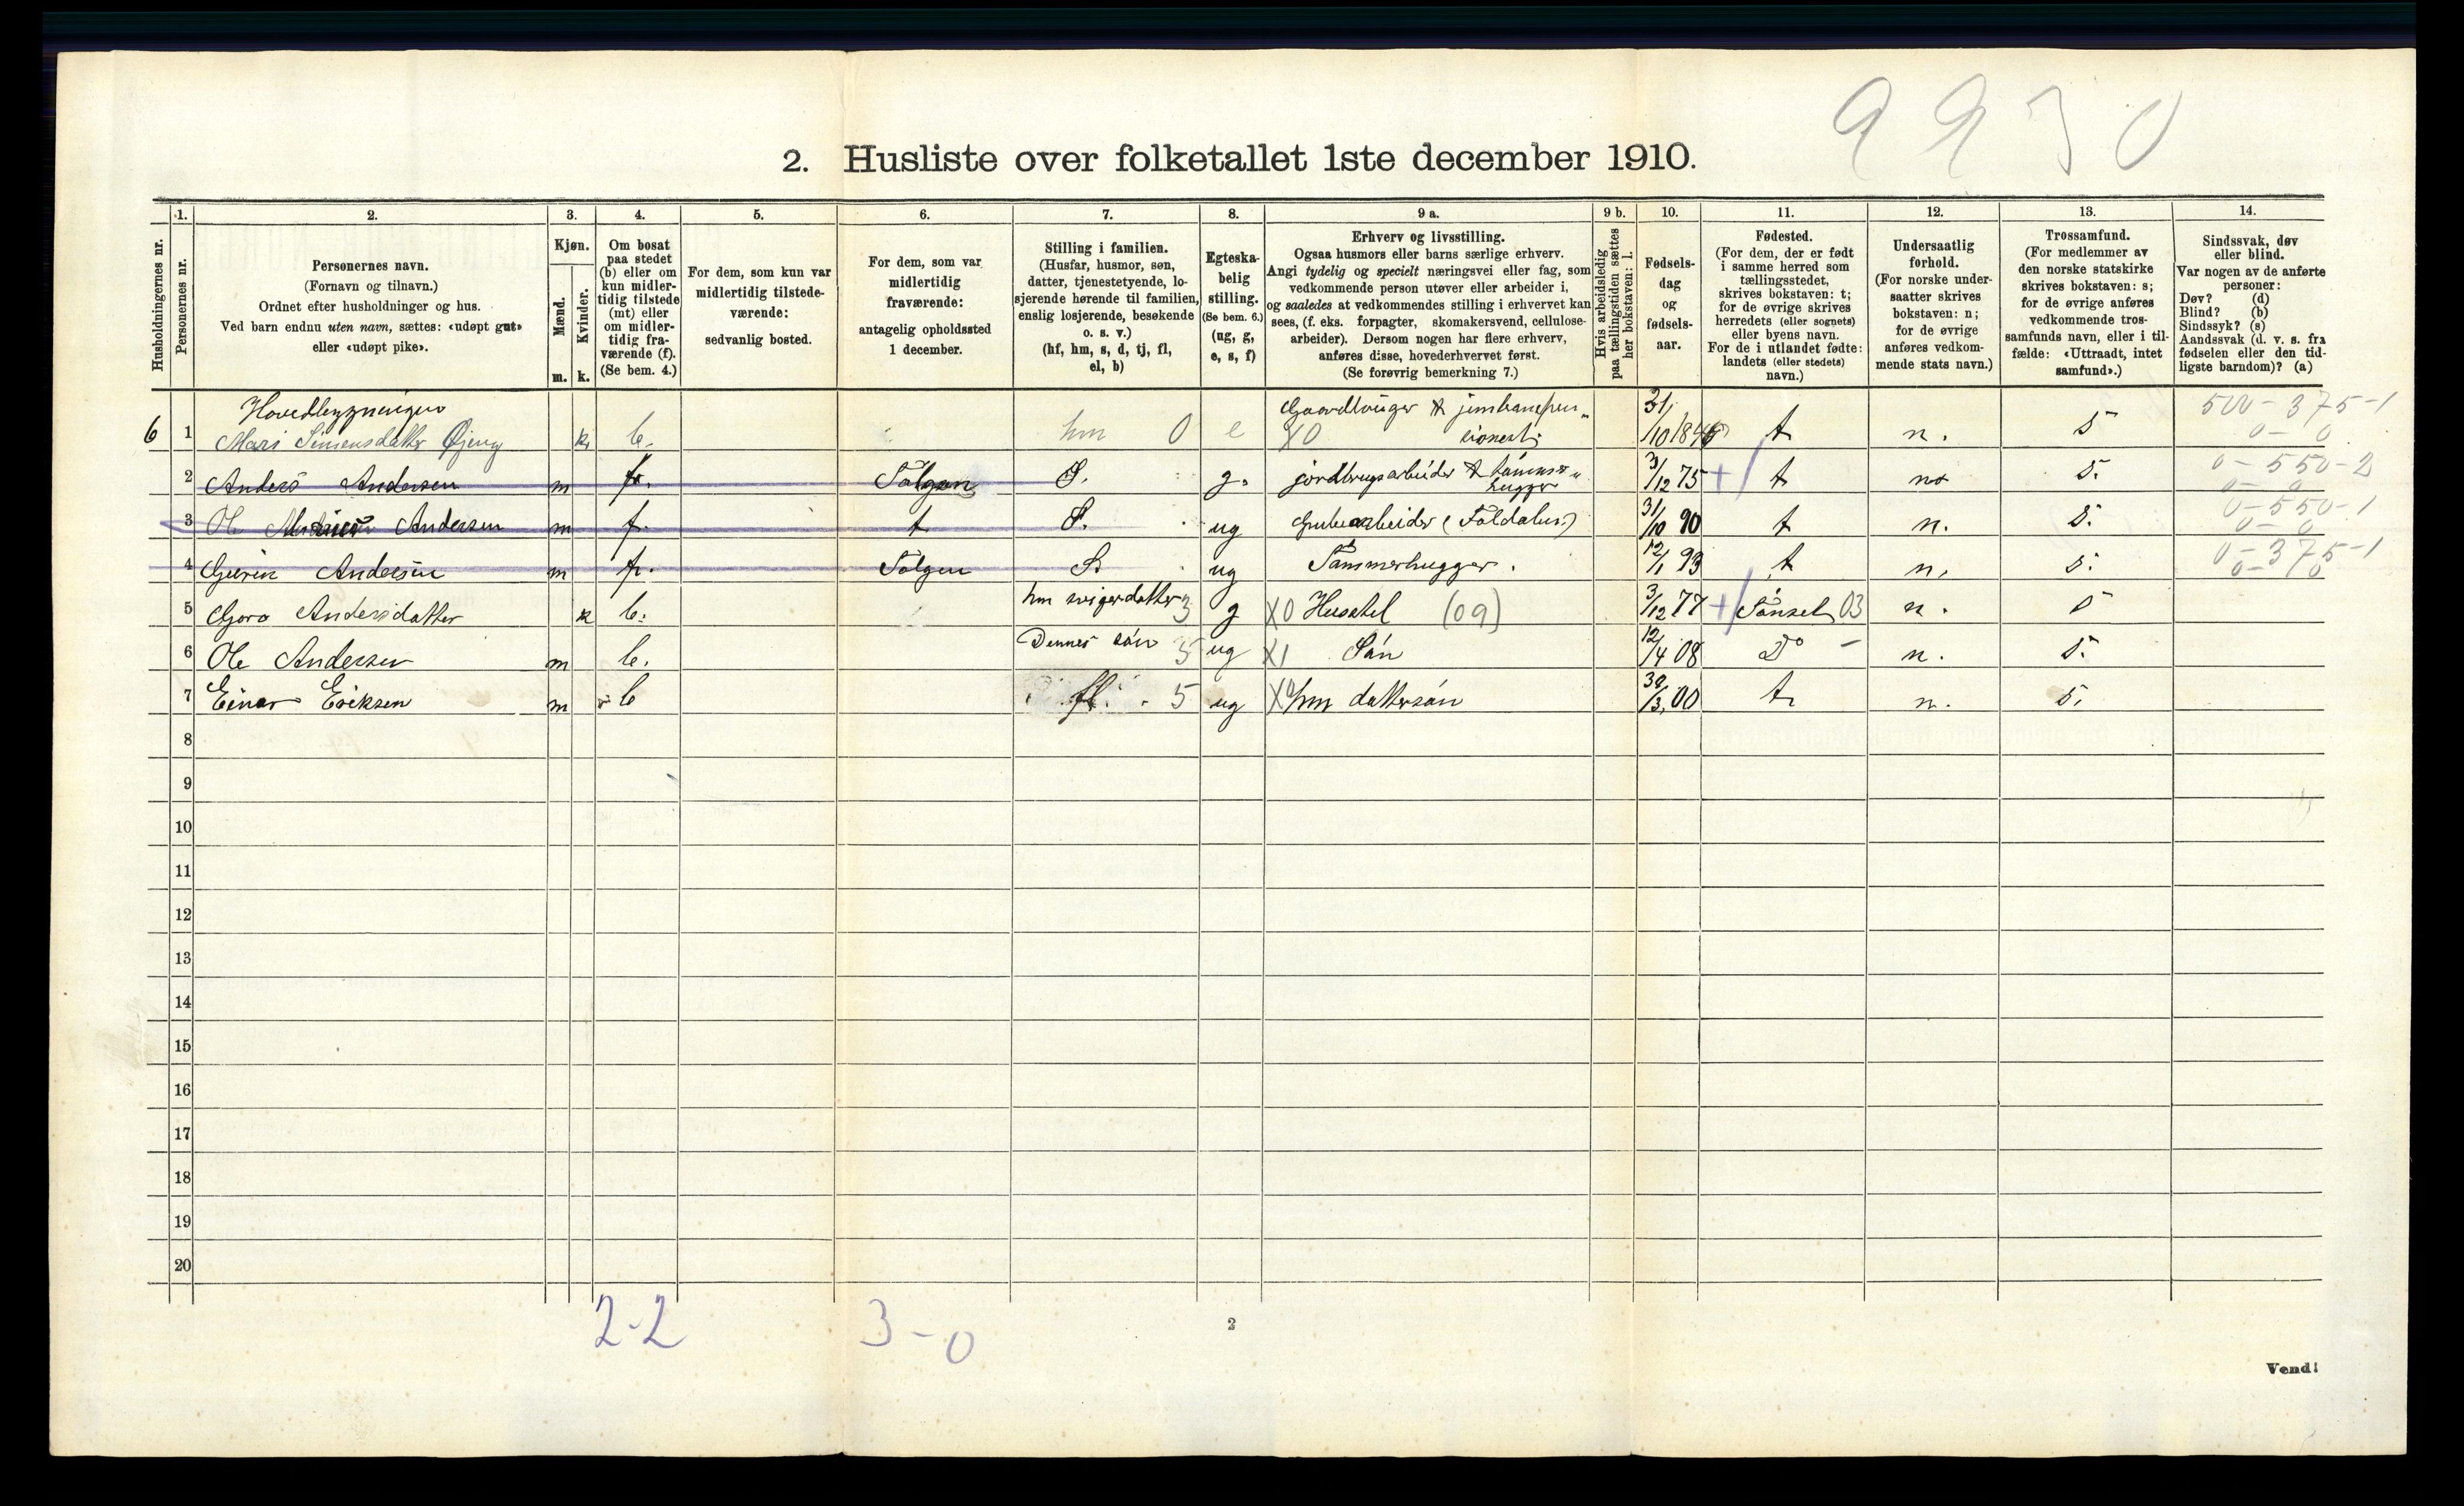 9 9 7 0
2. Husliste over folketallet 1ste december 1910.
1. 2. 3. 4. 5. 6. 7. 8. 9 a. 9 b. 10. 11. 12. 13. 14.
Husholdningernes nr.
Personernes nr.
Personernes navn.
(Fornavn og tilnavn.)
Ordnet efter husholdninger og hus.
Ved barn endnu uten navn, sættes: «udøpt gut»
eller «udøpt pike».
Kjøn.
Mænd.
Kvinder.
m. k.
Om bosat
paa stedet
(b) eller om
kun midler-
tidig tilstede
(mt) eller
om midler-
tidig fra-
værende (f).
(Se bem. 4.)
For dem, som kun var
midlertidig tilstede-
værende:
sedvanlig bosted.
For dem, som var
midlertidig
fraværende:
antagelig opholdssted
1 december.
Stilling i familien.
(Husfar, husmor, søn,
datter, tjenestetyende, lo-
sjerende hørende til familien,
enslig losjerende, besøkende
o. s. v.)
(hf, hm, s, d, tj, fl,
el, b)
Egteska-
belig
stilling.
(Se bem. 6.)
(ug, g,
e, s, f)
Erhverv og livsstilling.
Ogsaa husmors eller barns særlige erhverv.
Angi tydelig og specielt næringsvei eller fag, som
vedkommende person utøver eller arbeider i,
og saaledes at vedkommendes stilling i erhvervet kan
sees, (f. eks. forpagter, skomakersvend, cellulose-
arbeider). Dersom nogen har flere erhverv,
anføres disse, hovederhvervet først.
(Se forøvrig bemerkning 7.)
Hvis arbeidsledig
paa tællingstiden sættes
her bokstaven: l.
Fødsels-
dag
og
fødsels-
aar.
Fødested.
(For dem, der er født
i samme herred som
tællingsstedet,
skrives bokstaven: t;
for de øvrige skrives
herredets (eller sognets)
eller byens navn.
For de i utlandet fødte:
landets (eller stedets)
navn.)
Undersaatlig
forhold.
(For norske under-
saatter skrives
bokstaven: n;
for de øvrige
anføres vedkom-
mende stats navn.)
Trossamfund.
(For medlemmer av
den norske statskirke
skrives bokstaven: s;
for de øvrige anføres
vedkommende tros-
samfunds navn, eller i til-
fælde: «Uttraadt, intet
samfund».)
Sindssvak, døv
eller blind.
Var nogen av de anførte
personer:
Døv? (d)
Blind? (b)
Sindssyk? (s)
Aandssvak (d. v. s. fra
fødselen eller den tid-
ligste barndom)? (a)
Hovedbygningen Gaardbruger & jernbanepen- 31/ 500-375-1
6 1 Mari Simensdatter Øjeng k b. hm 0 e X0 sionest t n. s 0-0
2 Anders Andersen m f. Tolgen S. g. jordbrugsarbeider & tømmer- hugger 3/12 75 t n S. 0-550-2
3 Ole Andersen m f. t S. ug Grubearbeider (Foldalen) 31/10 90 t n. S. 0-550-1
4 Andersen m f. Tolgen S ug Tømmerhugger. 12/1 93 t n, S. 0-375-1
5 Goro Andersdatter k b. hm svigerdatter 3 g X0 Husstel (09) 3/12 77 Tønset 03 n. S
6 Ole Andersen m b. Dennes søn 5 ug X1 Søn 12/4 08 Do - n. S.
7 Einar Eriksen m b fl. 5 ug X hm dattersøn 30/3 00 t n. S.
8
9
10
11
12
13
14
15
16
17
18
19
20
2-2 3-0
2
Vend!